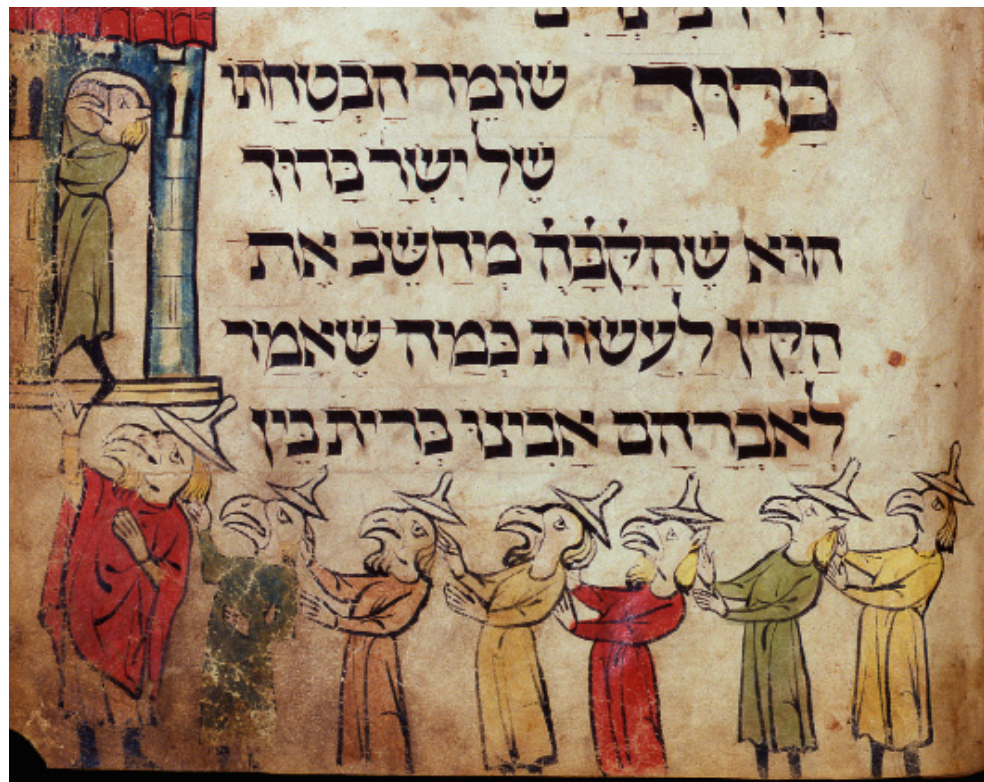 בָּרוּךְ שׁוֹמֵר הַבְטָחָתוֹ
שֶׁל יִשְׂרָ בָּרוּךְ
הוּא שֶׁהַקָּבָּהֶ מְחַשֵּׁב אֶת
הַקֵּץ לַעֲשׂוֹת כְּמָה שֶׁאָמַר
לְאַבְרָהָם אָבִינוּ בְּרִית בֵּין